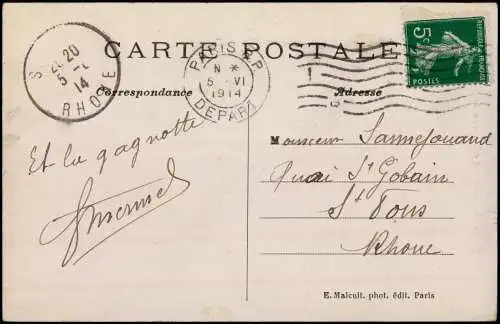 CARTE POSTALE
20 20
5 - 
14
RHONE
PARIS R.P.
N *
5 VI
1914
DEPART
5c
POSTES
Correspondance
Adresse
Et la gagnotte
Monsieur Sannejouand
Quai St Gobain
St Fons
Rhone
E. Malcuit. phot. édit. Paris